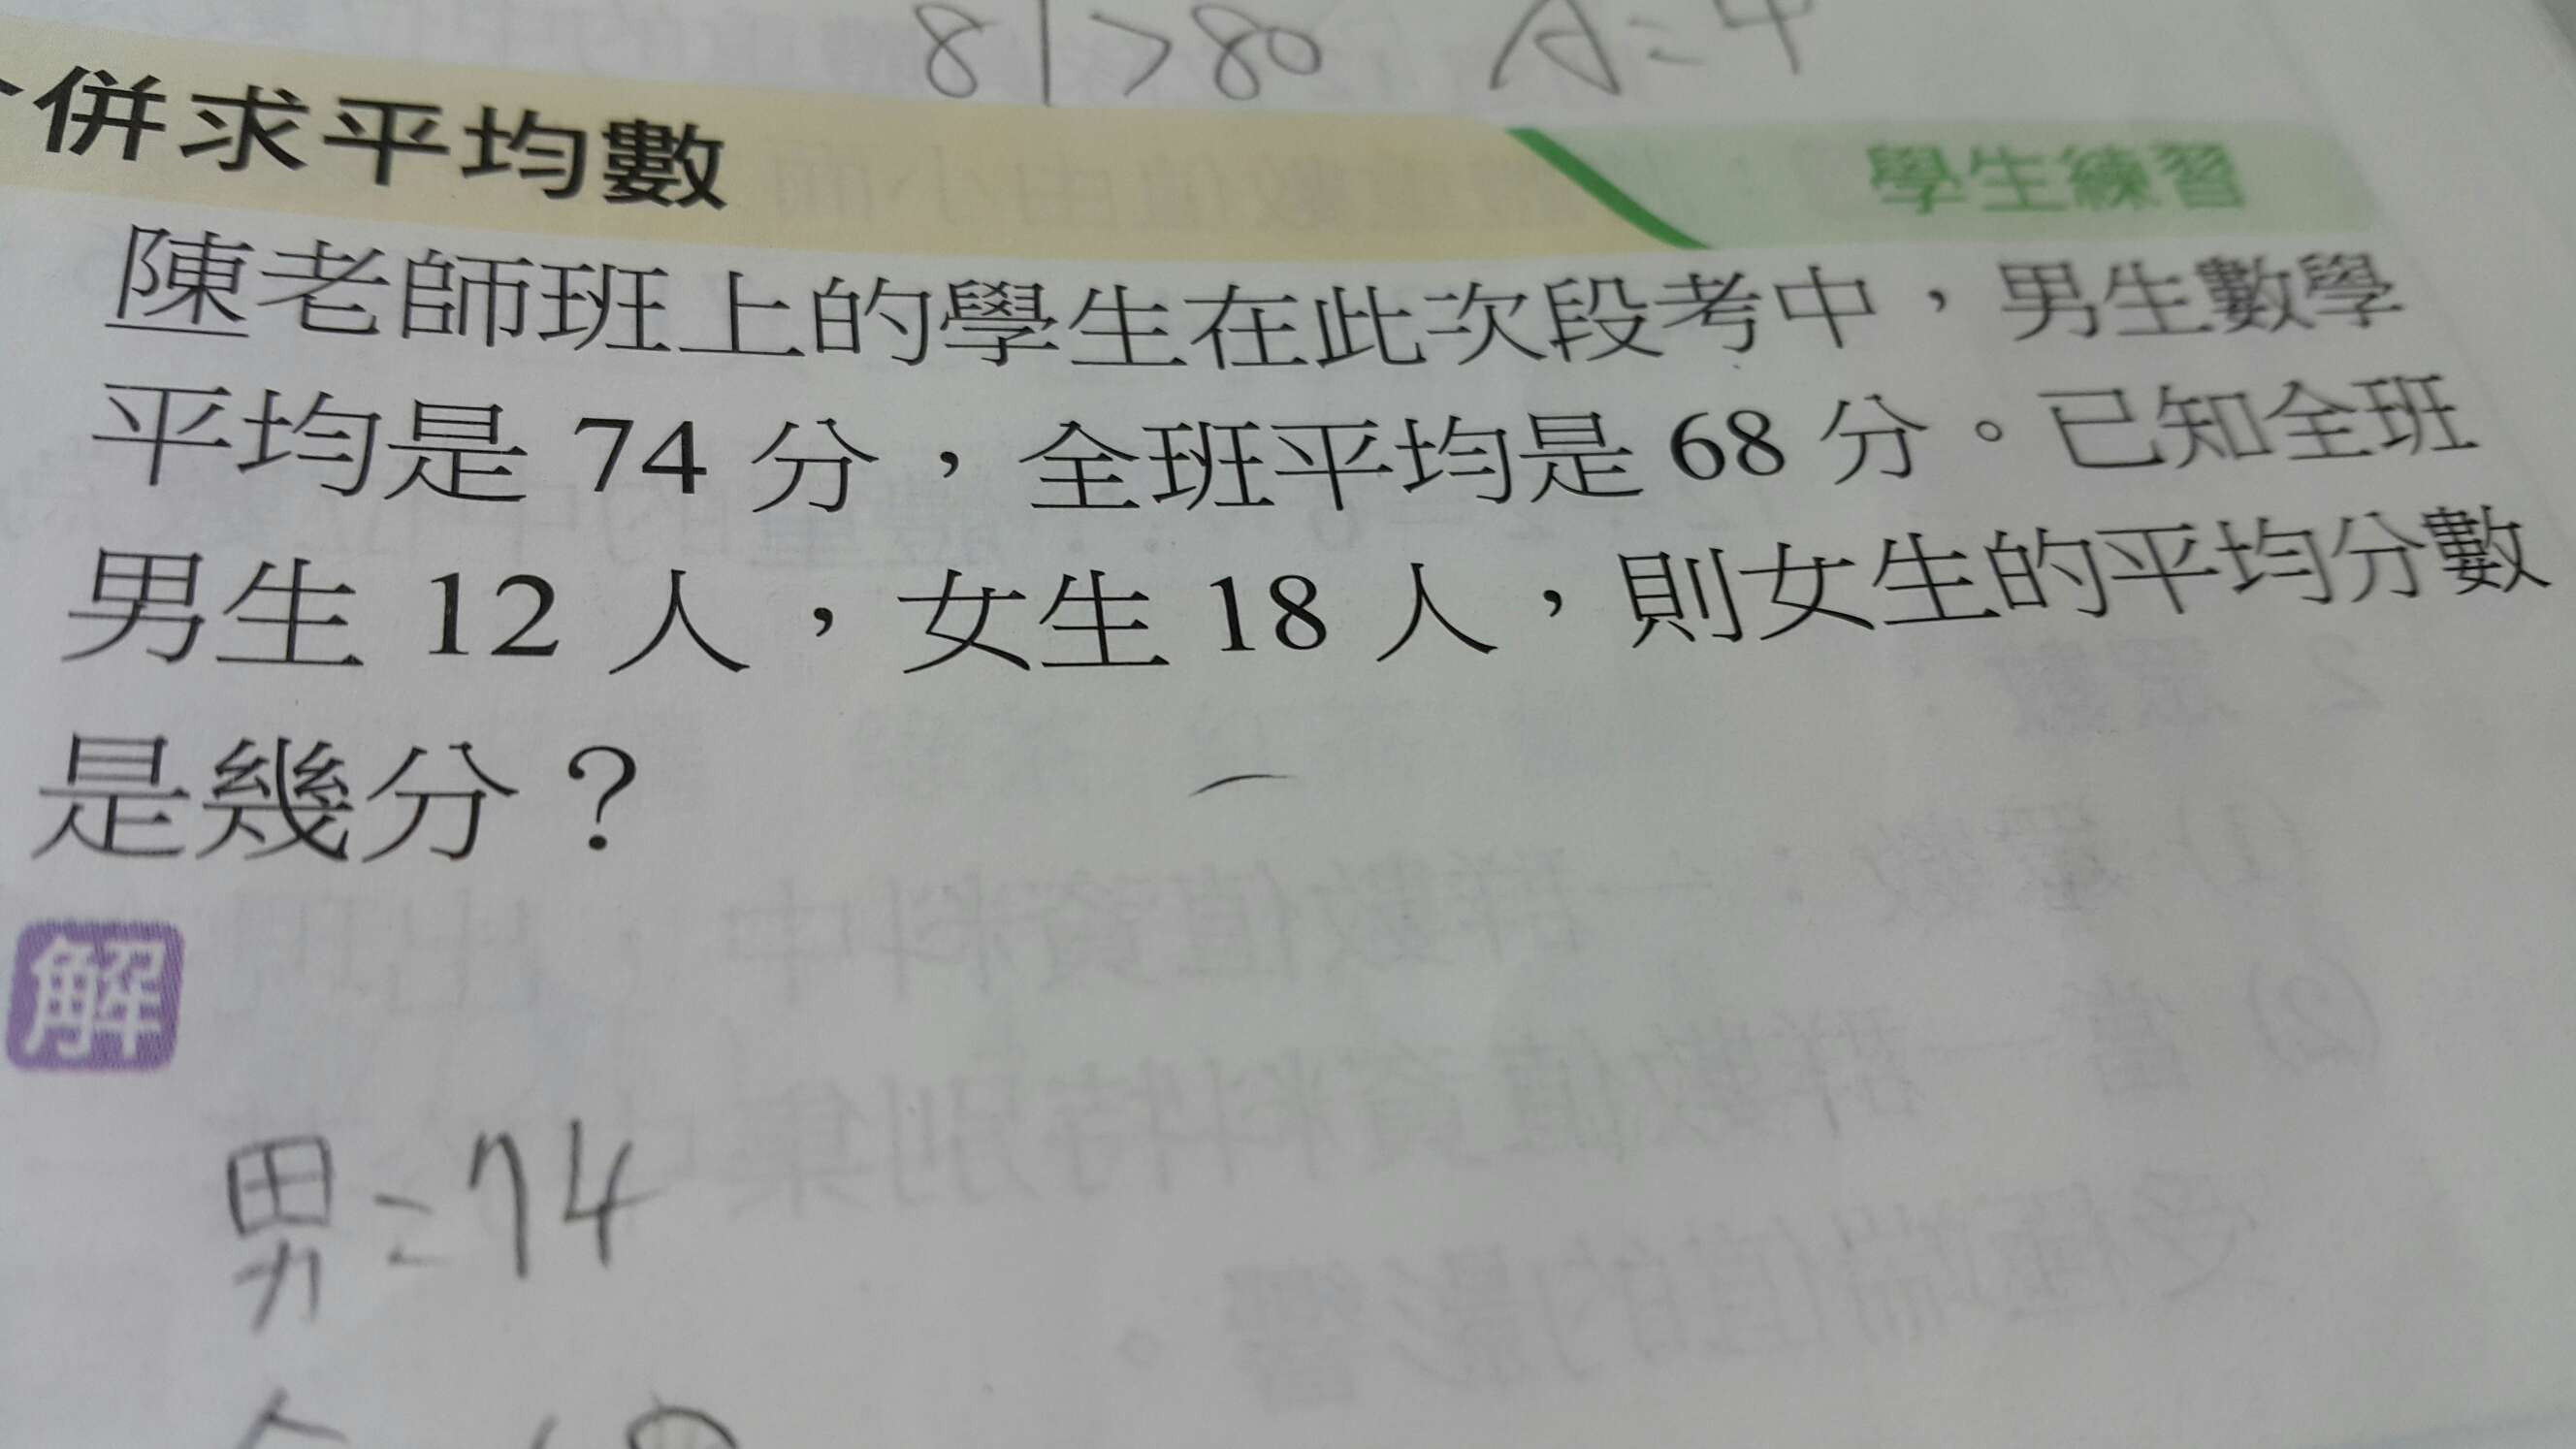 81>80 A=4
併求平均數
學生練習
陳老師班上的學生在此次段考中，男生數學
平均是 74 分，全班平均是 68 分。已知全班
男生 12 人，女生 18 人，則女生的平均分數
是幾分？
解
男=74